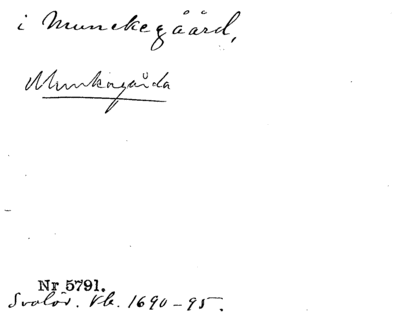 i Munckegåård,
Munkagårda
Nr 5791.
Svalöv. Vk. 1690-95.